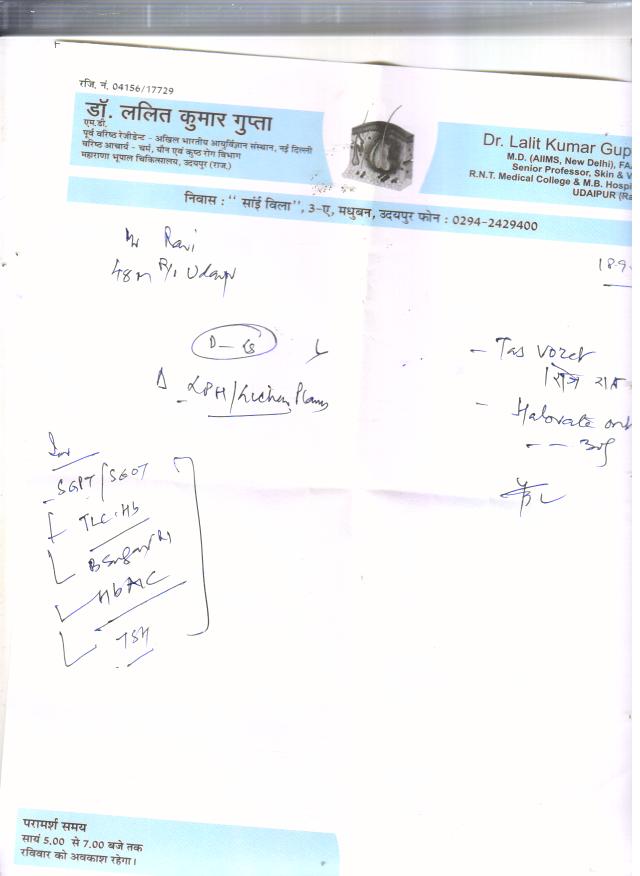 रजि. नं. 04156/17729
डॉ. ललित कुमार गुप्ता
एम.डी.
पूर्व वरिष्ठ रेजीडेन्ट - अखिल भारतीय आयुर्विज्ञान संस्थान, नई दिल्ली
वरिष्ठ आचार्य - चर्म, यौन एवं कुष्ठ रोग विभाग
महाराणा भूपाल चिकित्सालय, उदयपुर (राज.)
Dr. Lalit Kumar Gup
M.D. (AIIMS, New Delhi), FA
Senior Professor, Skin & V
R.N.T. Medical College & M.B. Hospi
UDAIPUR (Ra
निवास : " सांई विला", 3-ए, मधुबन, उदयपुर फोन : 0294-2429400
Mr Ravi
48m R/o Udaipur
18.9.
Δ LPH/Lichen Planus
- Tas
रोज रात
- Halovate oint
Inv
SGPT/SGOT
TLC. Hb
B Sugar
HbA1C
TSH
परामर्श समय
सायं 5.00 से 7.00 बजे तक
रविवार को अवकाश रहेगा।